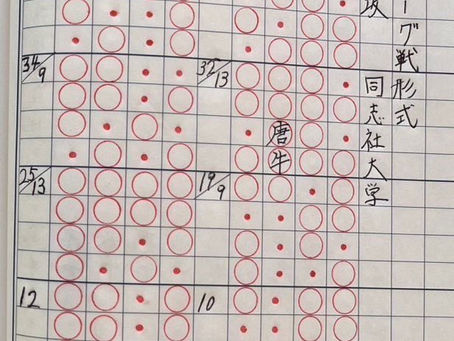 ーグ戦形式
同志社大学
34/9
32/13
唐
牛
25/13
19/9
12
10